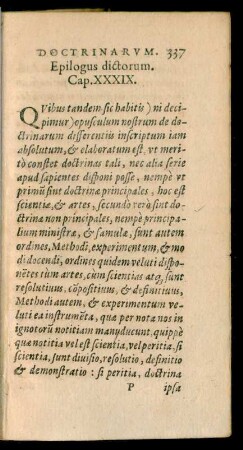 DOCTRINARVM. 337
Epilogus dictorum.
Cap. XXXIX.
QVibus tandem sic habitis) ni deci-
pimur) opusculum nostrum de do-
ctrinarum differentiis inscriptum iam
absolutum, & elaboratum est, vt meri-
tò constet doctrinas tali, nec alia serie
apud sapientes disponi posse, nempè vt
primū sint doctrinæ principales, hoc est
scientiæ, & artes, secundò verò sint do-
ctrinæ non principales, nempè principa-
lium ministræ, & famulæ, sunt autem
ordines, Methodi, experimentum, & mo
di docendi, ordines quidem veluti dispo-
nētes tùm artes, cùm scientias atq, sunt
resolutiuus, cōpositiuus, & definitiuus,
Methodi autem, & experimentum ve-
luti ea instrumēta, quæ per nota nos in
ignotorū notitiam manuducunt, quippè
quæ notitia vel est scientia, vel peritia, si
scientia, sunt diuisio, resolutio, definitio
& demonstratio : si peritia, doctrina
P ipsa